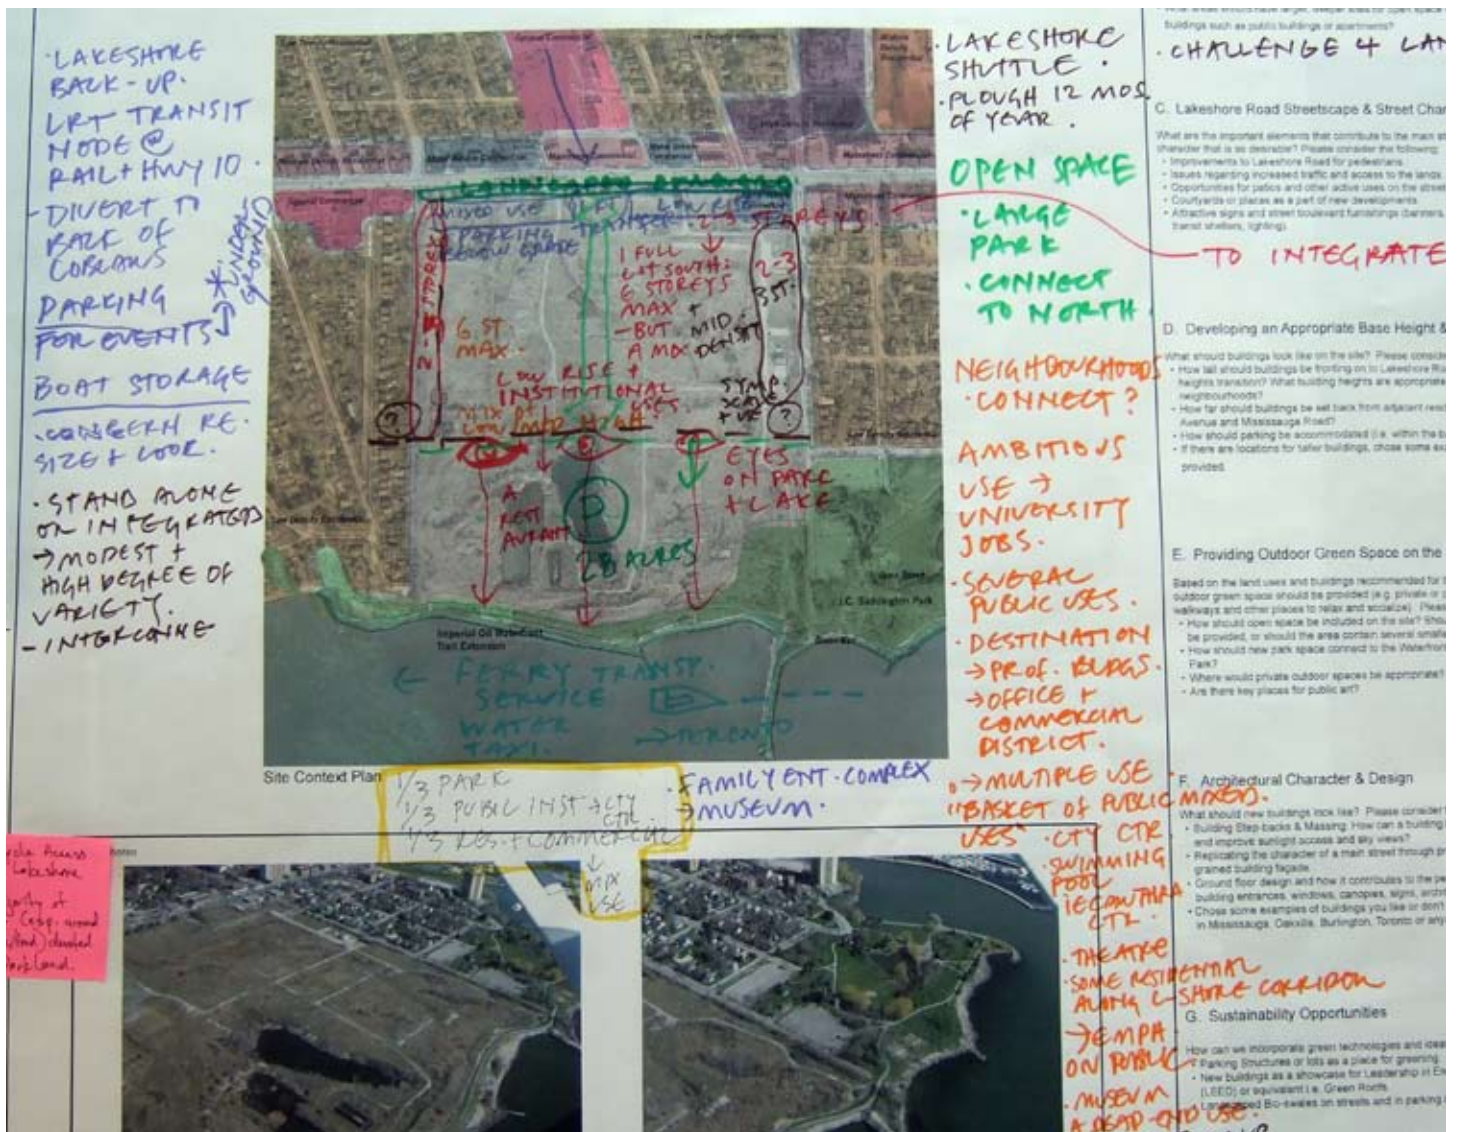 · LAKESHORE
BACK-UP.
LRT TRANSIT
NODE @
RAIL + HWY 10 ·
- DIVERT TO
BACK OF
PARKING
FOR EVENTS
* UNDER-
GROUND
BOAT STORAGE
· CONCERN RE.
SIZE + LOOK.
· STAND ALONE
OR INTEGRATED
→ MODEST +
HIGH DEGREE OF
VARIETY.
- INTERCONNE
MIXED USE
PARKING
BELOW GRADE
2-3 STOREYS
1 FULL
LOT SOUTH:
6 STOREYS
MAX +
- BUT MID
A MIX DENSITY
2-3
ST.
6 ST.
MAX.
LOW RISE +
INSTITUTIONAL
USES
SYMP.
SCALE
+ USE
?
?
EYES
ON PARK
+ LAKE
A
REST
AURANT
P
28 ACRES
J.C. Saddington Park
Imperial Oil Waterfront
Trail Extension
← FERRY TRANSP.
SERVICE
WATER
TAXI.
→ TORONTO
Site Context Plan
1/3 PARK
1/3 PUBLIC INST + CTY
CTR.
1/3 RES. + COMMERCIAL
↓
MIX
USE
· FAMILY ENT. COMPLEX
→ MUSEUM.
· LAKESHORE
SHUTTLE ·
· PLOUGH 12 MOS.
OF YEAR.
OPEN SPACE
· LARGE
PARK
· CONNECT
TO NORTH
NEIGHBOURHOODS
· CONNECT?
AMBITIOUS
USE →
UNIVERSITY
JOBS.
· SEVERAL
PUBLIC USES.
· DESTINATION
→ PROF. BLDGS.
→ OFFICE +
COMMERCIAL
DISTRICT.
→ MULTIPLE USE
"BASKET OF PUBLIC MIXED.
USES" · CTY CTR
· SWIMMING
POOL
CTR.
· THEATRE
· SOME RESIDENTIAL
ALONG L-SHORE CORRIDOR
→ EMPH.
ON PUBLIC
· MUSEUM
A DEAD-END USE.
TO INTEGRATE
buildings such as public buildings or apartments?
· CHALLENGE 4 LAN
C. Lakeshore Road Streetscape & Street Char
What are the important elements that contribute to the main st
character that is so desirable? Please consider the following:
• Improvements to Lakeshore Road for pedestrians
• Issues regarding increased traffic and access to the lands
• Opportunities for patios and other active uses on the street
• Courtyards or places as a part of new developments
• Attractive signs and street boulevard furnishings (banners,
transit shelters, lighting)
D. Developing an Appropriate Base Height &
What should buildings look like on the site? Please conside
• How tall should buildings be fronting on to Lakeshore Ro
heights transition? What building heights are appropriate
neighbourhoods?
• How far should buildings be set back from adjacent resid
Avenue and Mississauga Road?
• How should parking be accommodated (i.e. within the b
• If there are locations for taller buildings, chose some ex
provided.
E. Providing Outdoor Green Space on the
Based on the land uses and buildings recommended for t
outdoor green space should be provided (e.g. private or p
walkways and other places to relax and socialize). Pleas
• How should open space be included on the site? Shou
be provided, or should the area contain several smalle
• How should new park space connect to the Waterfront
Park?
• Where would private outdoor spaces be appropriate?
• Are there key places for public art?
F. Architectural Character & Design
What should new buildings look like? Please consider
• Building Step-backs & Massing: How can a building
and improve sunlight access and sky views?
• Replicating the character of a main street through
grained building façade
• Ground floor design and how it contributes to the pe
building entrances, windows, canopies, signs, archit
• Chose some examples of buildings you like or don't
in Mississauga, Oakville, Burlington, Toronto or any
G. Sustainability Opportunities
How can we incorporate green technologies and idea
• Parking Structures or lots as a place for greening
• New buildings as a showcase for Leadership in En
(LEED) or equivalent i.e. Green Roofs
• Landscaped Bio-swales on streets and in parking
Access
Lakeshore